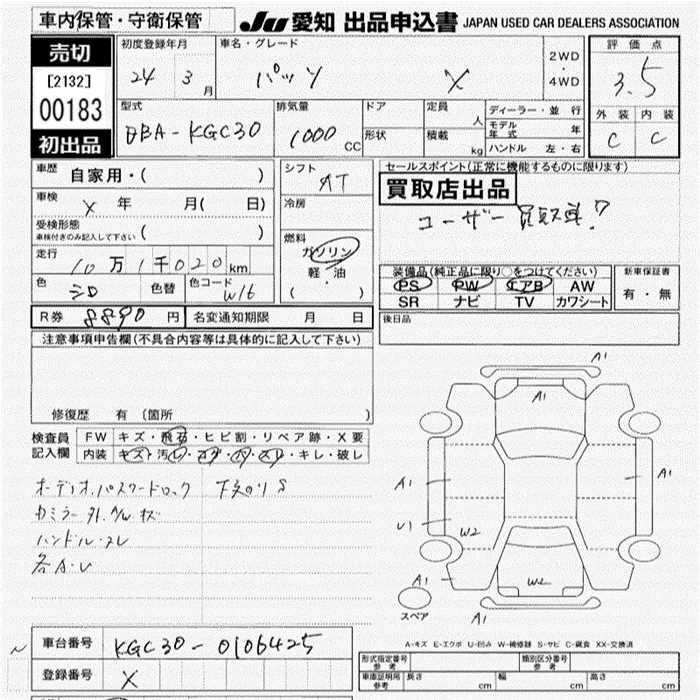 車内保管・守衛保管
JU 愛知 出品申込書 JAPAN USED CAR DEALERS ASSOCIATION
売切
[2132]
00183
初出品
初度登録年月
24 3月
車名・グレード
パッソ X
2WD
・
4WD
評価点
3.5
外装 内装
C C
型式
DBA-KGC30
排気量
1000 CC
ドア
形状
定員 人
積載 kg
ディーラー・並行
モデル年式 年
ハンドル 左・右
車歴
自家用・( )
車検
X 年 月( 日)
受検形態
車検付きのみ記入して下さい ( )
走行
10万1千020km
色
シロ
色替
色コード
W16
シフト
AT
冷房
燃料
ガソリン
軽・油
( )
セールスポイント(正常に機能するものに限ります)
買取店出品
ユーザー買取車!
装備品(純正品に限り○をつけてください)
PS PW エアB AW
SR ナビ TV カワシート
新車保証書
有・無
R券 8890円
名変通知期限 月 日
後日品
注意事項申告欄(不具合内容等は具体的に記入して下さい)
修復歴 有 (箇所 )
検査員
記入欄
FW キズ・飛石・ヒビ割・リペア跡・X要
内装 キズ・汚レ・コゲ・穴・スレ・キレ・破レ
オーディオパスワードロック
ハンドル・スレ
A1
A1
A1
A1
U1
W2
A1
W2
A1
スペア
A-キズ E-エクボ U-凹み W-補修跡 S-サビ C-腐食 XX-交換済
車台番号
KGC30-0106425
登録番号
X
形式指定番号
参考
類別区分番号
参考
車庫証明用
参考
長さ cm
幅 cm
高さ cm